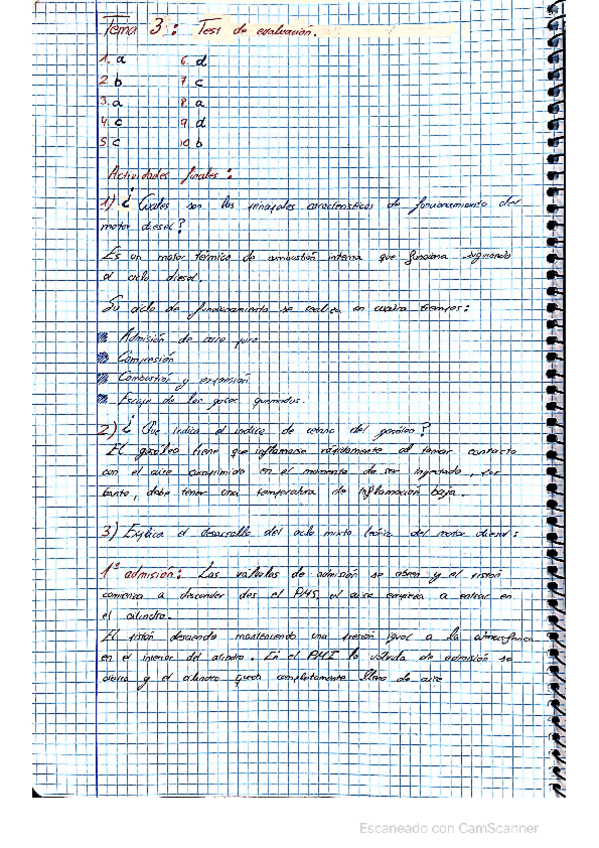 Tema 3: Test de evaluación.
1. a 6. d
2 b 7. c
3. a 8. a
4. c 9 d
5 c 10 b
Actividades finales:
1) ¿ Cuales son las principales características de funcionamiento del
motor diesel?
Es un motor térmico de combustión interna que funciona siguiendo
el ciclo diesel.
Su ciclo de funcionamiento se realiza en cuatro tiempos:
Admisión de aire puro
Compresión
Combustión y expansión
Escape de los gases quemados.
2) ¿ Que indica el indice de cetano del gasóleo?
El gasóleo tiene que inflamarse rápidamente al tomar contacto
con el aire comprimido en el momento de ser inyectado, por
tanto, debe tener una temperatura de inflamación baja.
3) Explica el desarrollo del ciclo mixto teórico del motor diesel:
1º admisión: Las válvulas de admisión se abren y el pistón
comienza a descender des el PMS, el aire empieza a entrar en
el cilindro.
El pistón desciende manteniendo una presión igual a la atmosférica
en el interior del cilindro. En el PMI la válvula de admisión se
cierra y el cilindro queda completamente lleno de aire
Escaneado con CamScanner